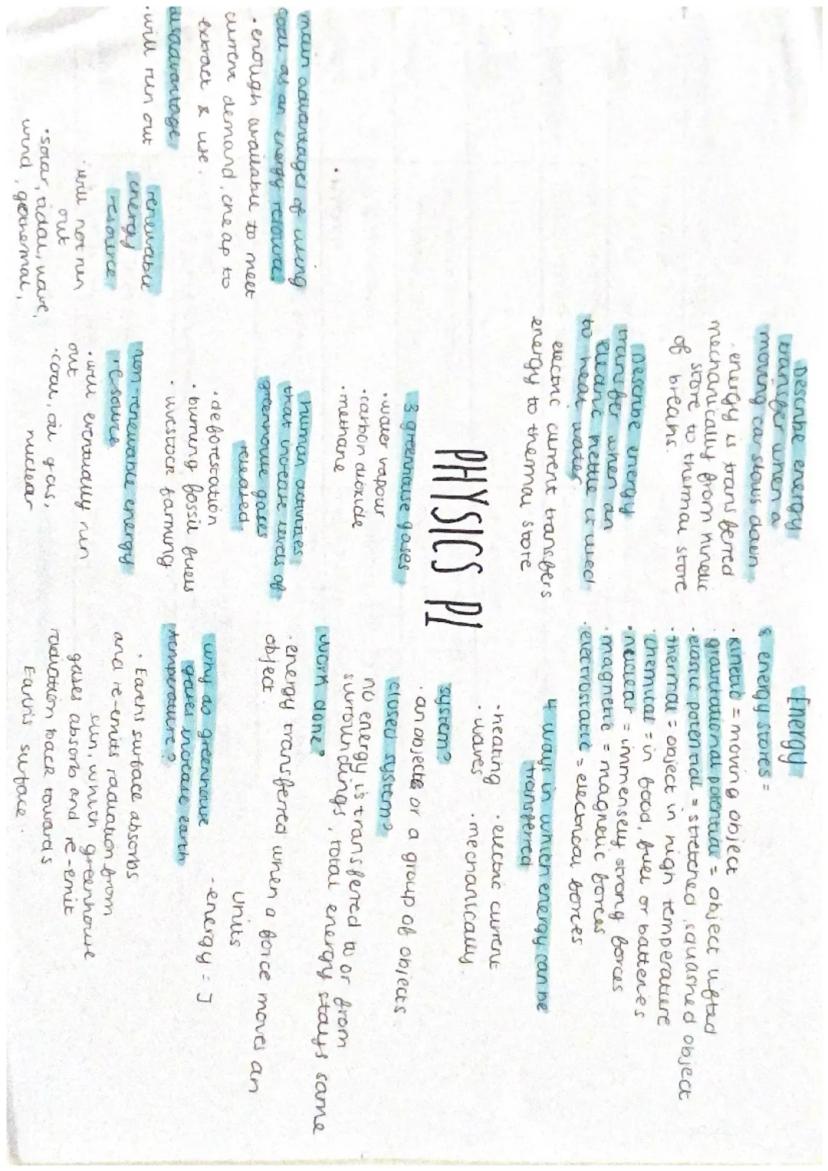 PHYSICS P1
Energy
8 energy stores =
• kinetic = moving object
• gravitational potential = object lifted
• elastic potential = stretched, squashed object
• thermal = object in high temperature
• chemical = in food, fuel or batteries
• nuclear = immensely strong forces
• magnetic = magnetic forces
• electrostatic = electrical forces
4 ways in which energy can be
transferred
• heating • electric current
• waves • mechanically
system?
• an objects or a group of objects
closed system?
no energy is transfered to or from
surroundings, total energy stays same
work done?
• energy transferred when a force moves an
object.
units
• energy = J
why do greenhouse
gases increase earth
temperature?
• Earths surface absorbs
and re-emits radiation from
sun, which greenhouse
gases absorb and re-emit
radiation back towards
Earths surface.
Describe energy
transfer when a
moving car slows down
• energy is transferred
mechanically from kinetic
store to thermal store
of breaks.
Describe energy
transfer when an
electric kettle is used
to heat water.
electric current transfers
energy to thermal store
3 greenhouse gases
• water vapour
• carbon dioxide
• methane
human activities
that increase levels of
greenhouse gases
released
• deforestation
• burning fossil fuels
• livestock farming
non-renewable energy
resource
• will eventually run
out
• coal, oil, gas,
nuclear
main advantages of using
coal as an energy resource
• enough available to meet
current demand, cheap to
extract & use.
disadvantage
• will run out
renewable
energy
resource
• will not run
out
• solar, tidal, wave,
wind, geothermal,